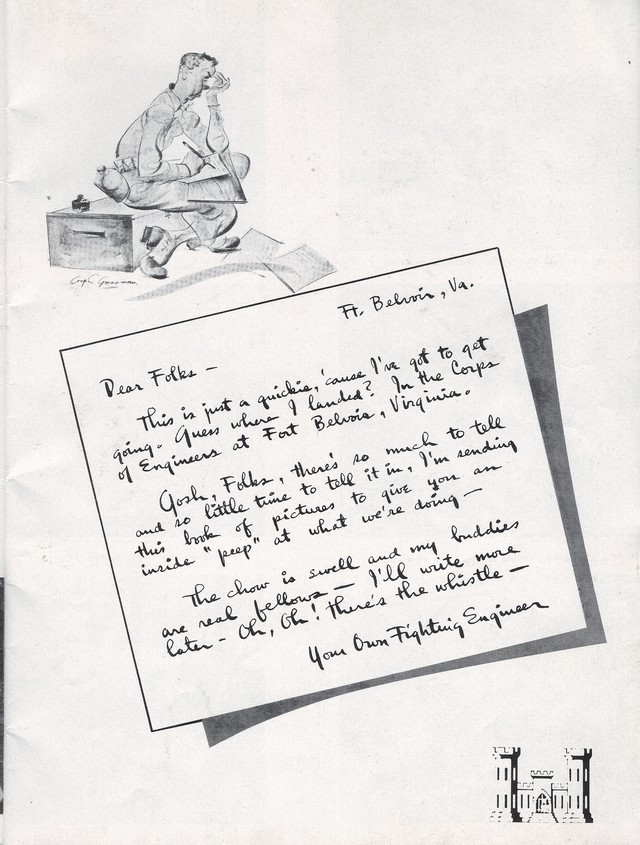 Ft. Belvoir, Va.
Dear Folks —
This is just a quickie, 'cause I've got to get
going. Guess where I landed? In the Corps
of Engineers at Fort Belvoir, Virginia.
Gosh, Folks, there's so much to tell
and so little time to tell it in, I'm sending
this book of pictures to give you an
inside "peep" at what we're doing —
The chow is swell and my buddies
are real fellows — I'll write more
later — Oh, Oh! There's the whistle —
Your Own Fighting Engineer